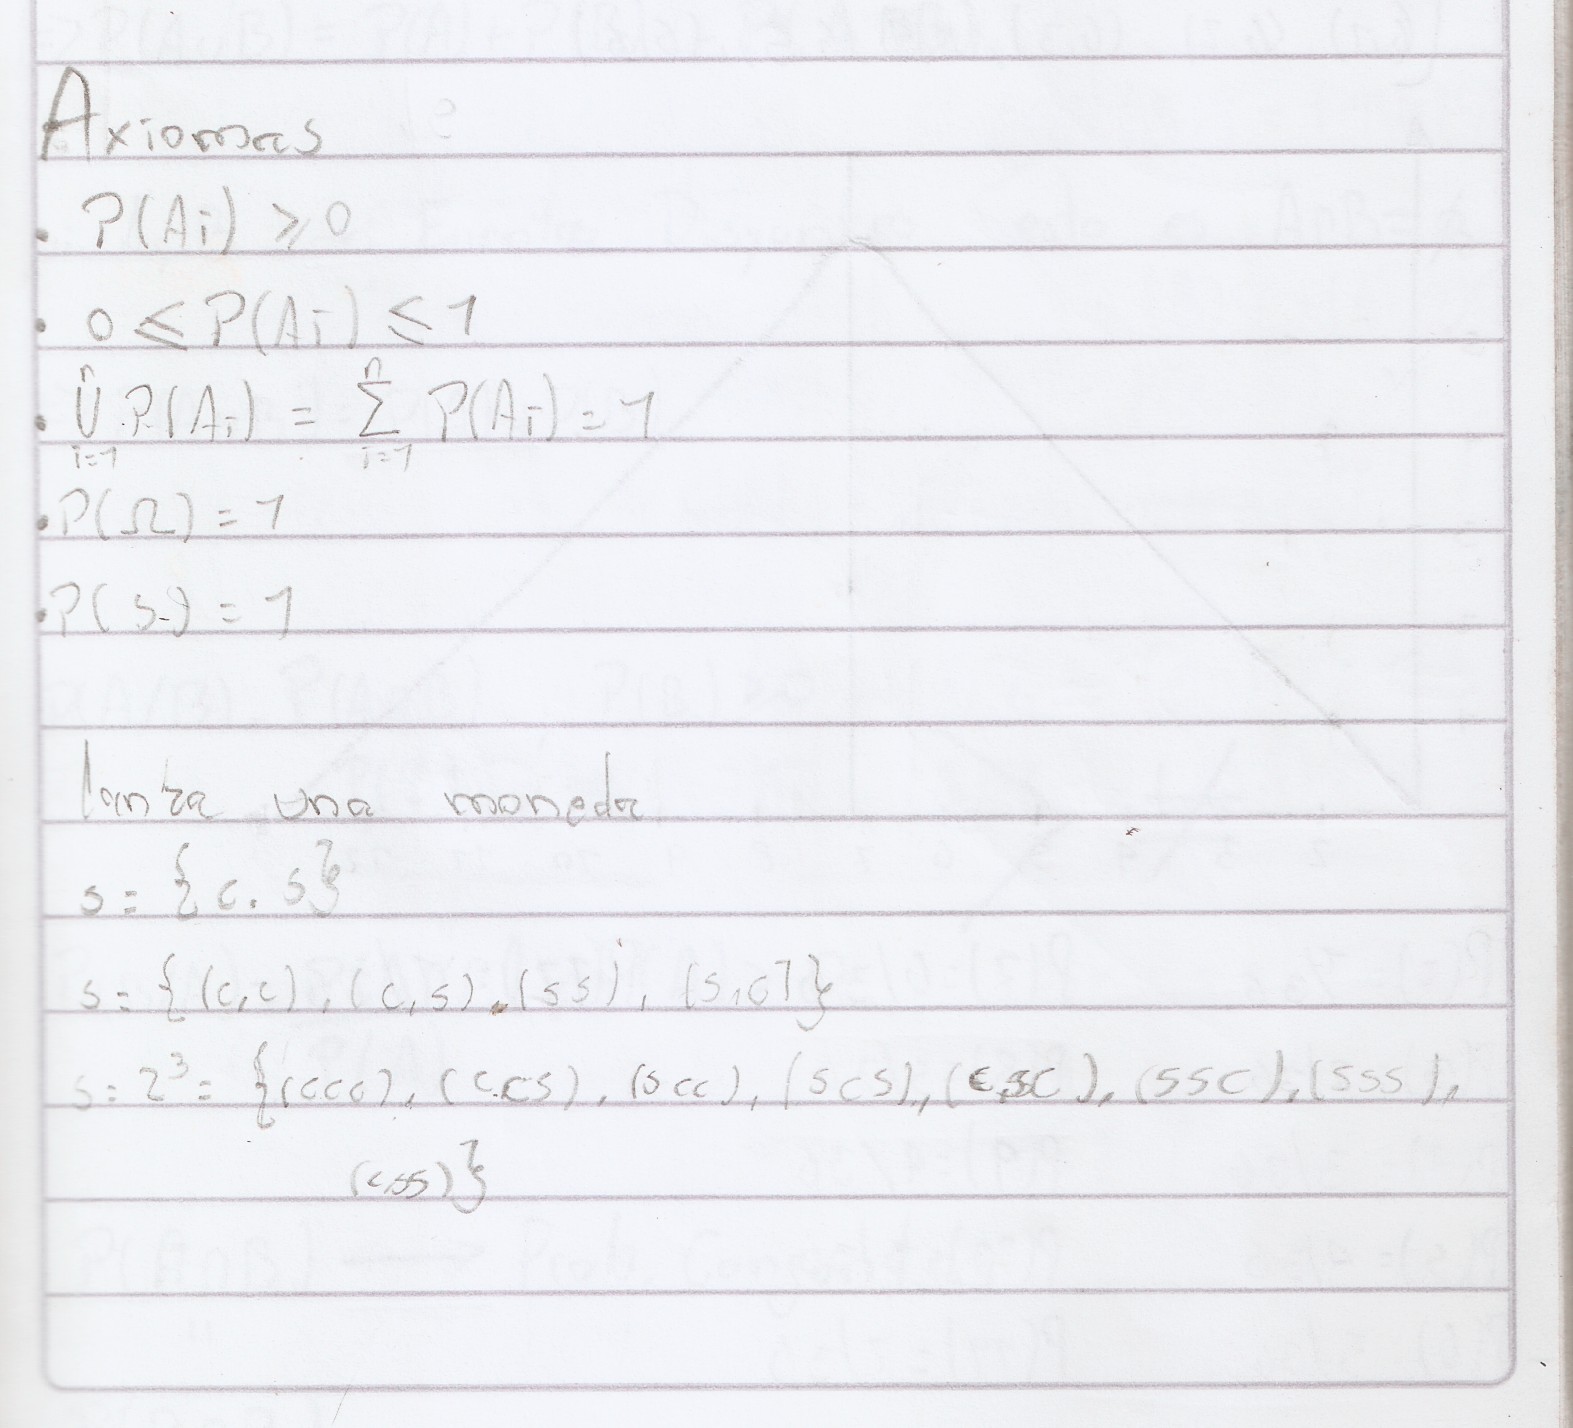 Axiomas
• P(Ai) ≥ 0
• 0 ≤ P(Ai) ≤ 1
• ⋃ⁿᵢ₌₁ P(Ai) = Σⁿᵢ₌₁ P(Ai) = 1
• P(Ω) = 1
• P(S) = 1
lanza una moneda
s = {c, s}
s = {(c,c), (c,s), (ss), (s,c)}
s = 2³ = {(ccc), (ccs), (scc), (scs), (csc), (ssc), (sss),
(css)}